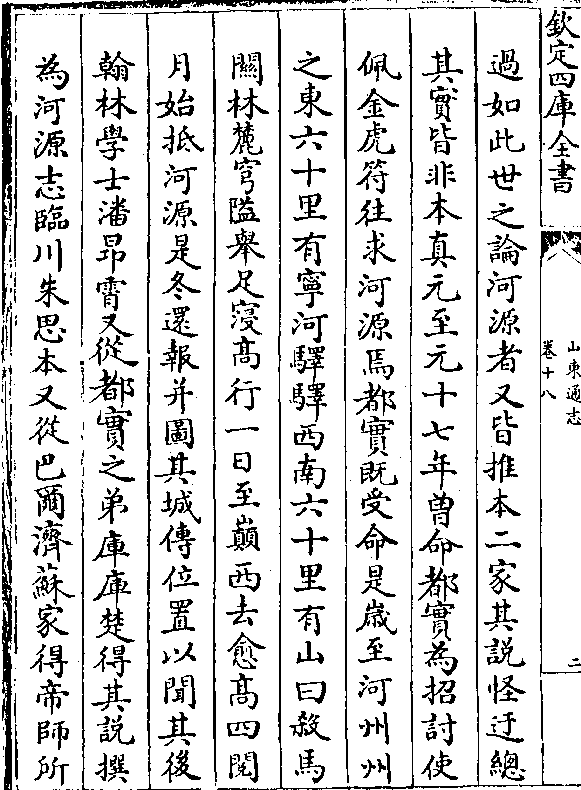 欽定四庫全書
山東通志
卷十八
二
過如此世之論河源者又皆推本二家其說怪迂總
其實皆非本真元至元十七年曾命都實為招討使
佩金虎符往求河源焉都實既受命是歲至河州州
之東六十里有寧河驛驛西南六十里有山曰殺馬
關林麓穹隘舉足寖高行一日至巔西去愈高四閱
月始抵河源是冬還報并圖其城傳位置以聞其後
翰林學士潘昂霄又從都實之弟庫庫楚得其說撰
為河源志臨川朱思本又從巴爾濟蘇家得帝師所